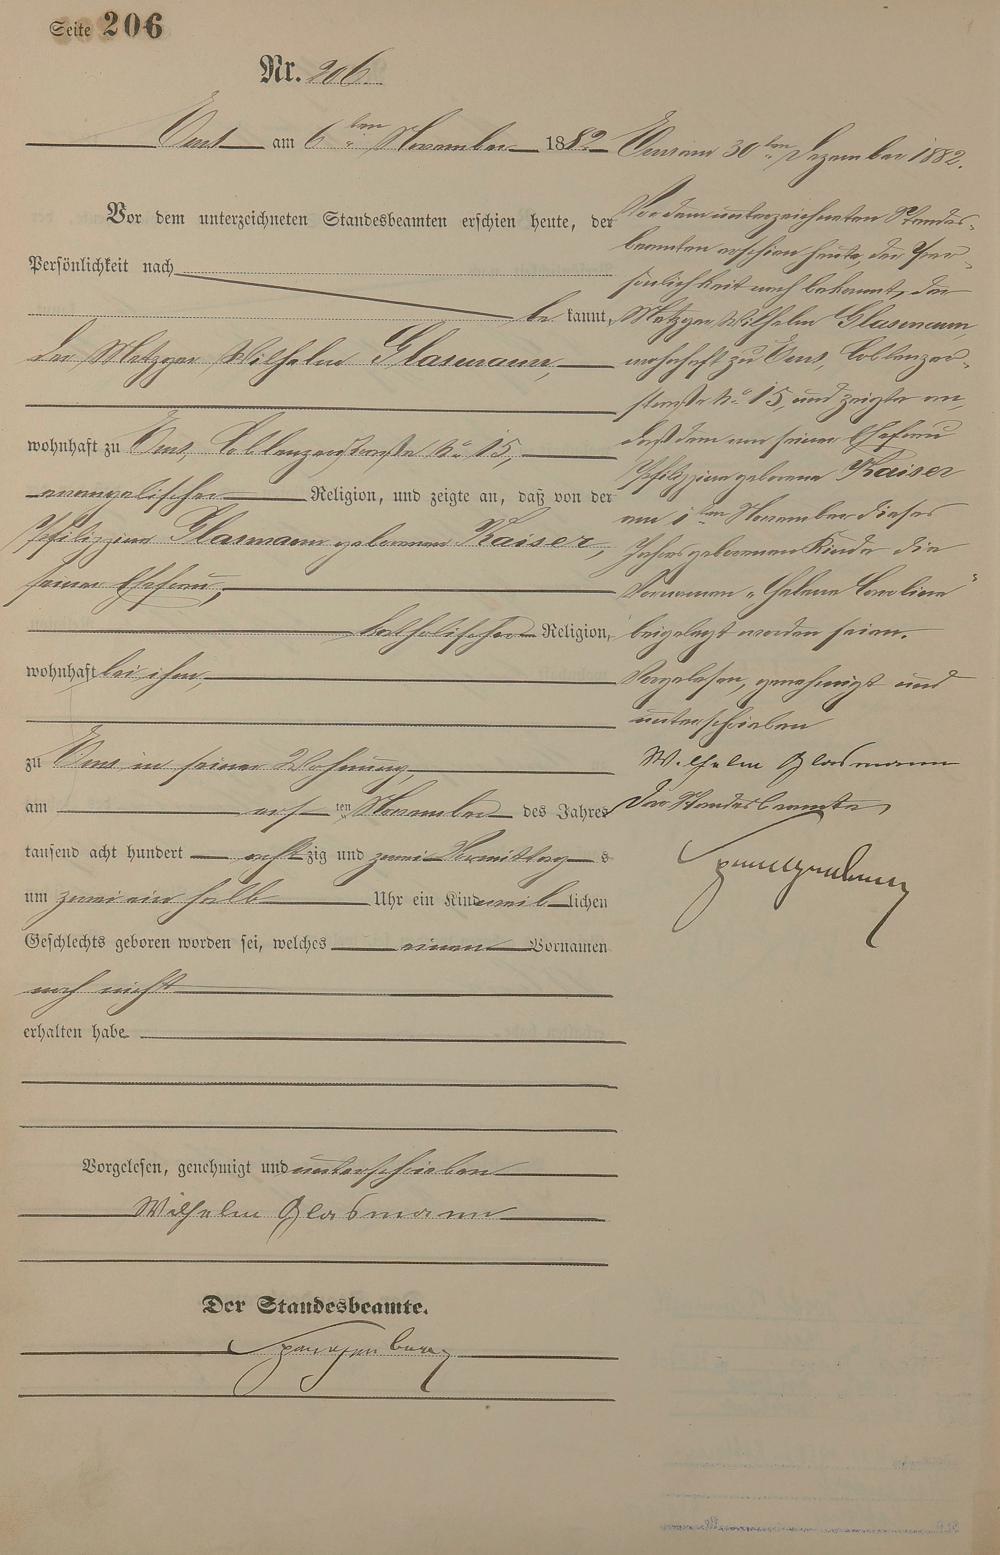 Seite 206
Nr. 206.
Ems am 6ten November 1882
Vor dem unterzeichneten Standesbeamten erschien heute, der
Persönlichkeit nach
be kannt,
der Metzger Wilhelm Glasmann,
wohnhaft zu Ems, Coblenzerstraße No 15,
evangelischer Religion, und zeigte an, daß von der
Philippine Glasmann geborenen Kaiser,
seiner Ehefrau,
katholischer Religion,
wohnhaft bei ihm,
zu Ems in seiner Wohnung,
am ersten November des Jahres
tausend acht hundert achtzig und zwei Vormittags
um zwei ein halb Uhr ein Kind weiblichen
Geschlechts geboren worden sei, welches einen Vornamen
noch nicht
erhalten habe.
Vorgelesen, genehmigt und unterschrieben
Wilhelm Glasmann
Der Standesbeamte.
Spangenberg
Ems am 30ten Dezember 1882.
Vor dem unterzeichneten Standes-
beamten erschien heute, der Per-
sönlichkeit nach bekannt, der
Metzger Wilhelm Glasmann,
wohnhaft zu Ems, Coblenzer-
straße No 15, und zeigte an,
daß dem von seiner Ehefrau
Philippine geborene Kaiser
am 1ten November dieses
Jahres geborenen Kinde die
Vornamen „Helene Caroline"
beigelegt worden seien.
Vorgelesen, genehmigt und
unterschrieben
Wilhelm Glasmann
Der Standesbeamte,
Spangenberg